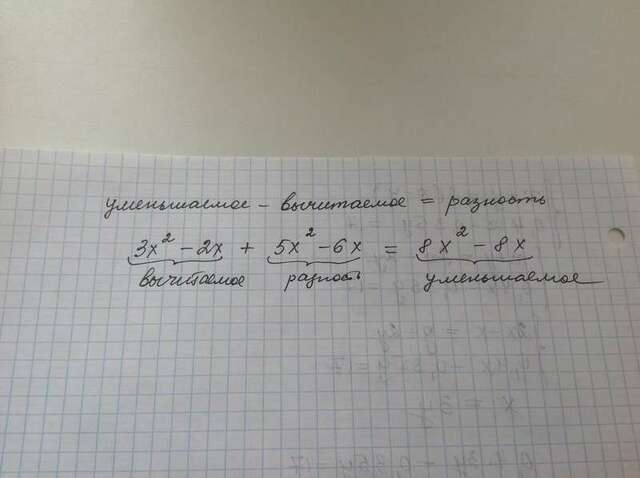 уменьшаемое - вычитаемое = разность
3x² - 2x + 5x² - 6x = 8x² - 8x
вычитаемое разность уменьшаемое